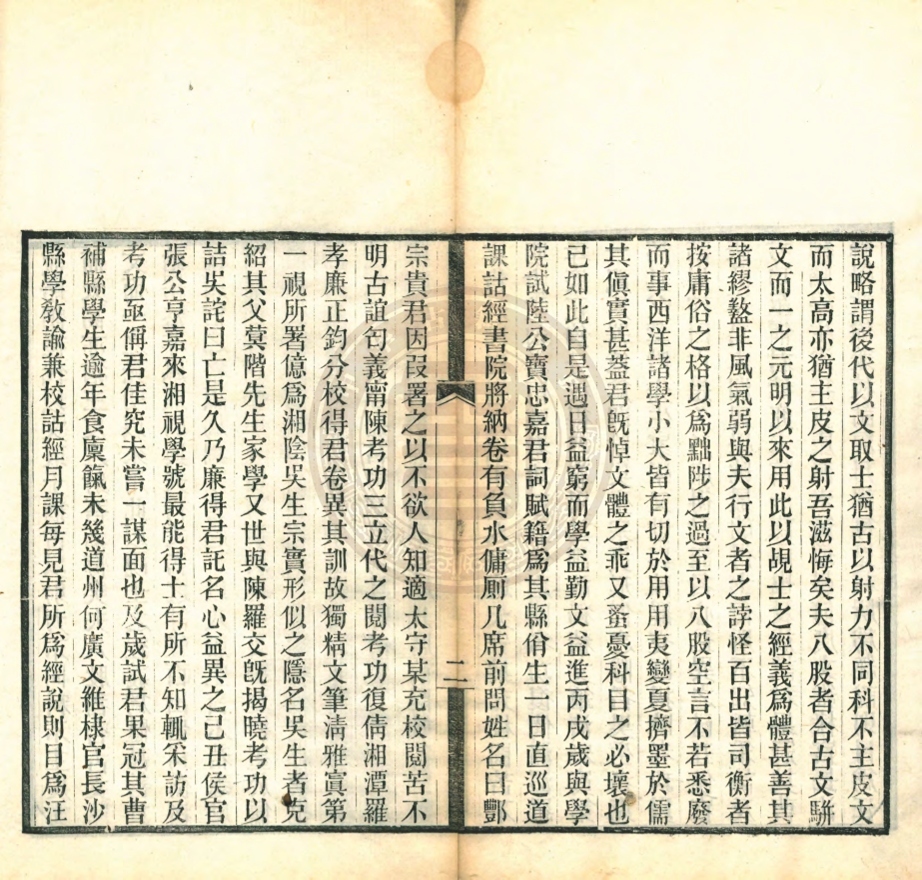 說略謂後代以文取士猶古以射力不同科不主皮文
而太高亦猶主皮之射吾滋悔矣夫八股者合古文駢
文而一之元明以來用此以覘士之經義爲體甚善其
諸繆盭非風氣弱與夫行文者之誖怪百出皆司衡者
按庸俗之格以爲黜陟之過至以八股空言不若悉廢
而事西洋諸學小大皆有切於用用夷變夏擠墨於儒
其傎實甚蓋君旣悼文體之乖又蚤憂科目之必壞也
已如此自是遇日益窮而學益勤文益進丙戌歲與學
院試陸公寶忠嘉君詞賦籍爲其縣佾生一日直巡道
課詁經書院將納卷有負水傭厠几席前問姓名曰酆
二
宗貴君因叚署之以不欲人知適太守某充校閱苦不
明古誼匄義甯陳考功三立代之閱考功復倩湘潭羅
孝廉正鈞分校得君卷異其訓故獨精文筆淸雅寘第
一視所署億爲湘陰吳生宗實形似之隱名吳生者克
紹其父蓂階先生家學又世與陳羅交旣揭曉考功以
詰吳詫曰亡是久乃廉得君託名心益異之己丑侯官
張公亨嘉來湘視學號最能得士有所不知輒采訪及
考功亟偁君佳究未嘗一謀面也及歲試君果冠其曹
補縣學生逾年食廩餼未幾道州何廣文維棣官長沙
縣學敎諭兼校詁經月課每見君所爲經說則目爲汪